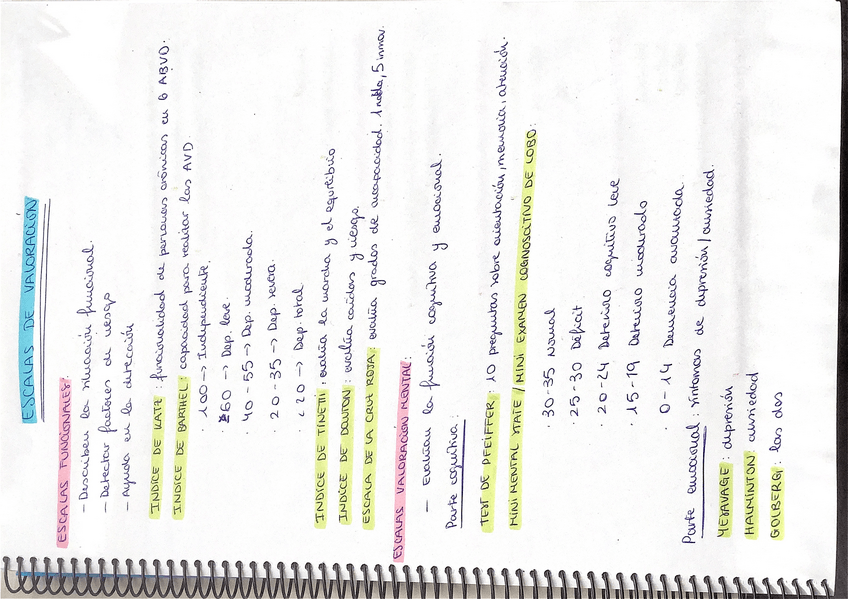 ESCALAS DE VALORACIÓN
ESCALAS FUNCIONALES:
- Describen la situación funcional.
- Detectar factores de riesgo
- Ayuda en la detección
INDICE DE KATZ: funcionalidad de personas crónicas en 6 ABVD.
INDICE DE BARTHEL: capacidad para realizar las AVD
· 100 -> Independiente.
· ≥60 -> Dep. leve.
· 40-55 -> Dep. moderada.
· 20-35 -> Dep. severa.
· <20 -> Dep. total
INDICE DE TINETTI: evalúa la marcha y el equilibrio
INDICE DE DOWTON: evalúa caídas y riesgo.
ESCALA DE LA CRUZ ROJA: evalúa grados de incapacidad. 1 nada, 5 inmov.
ESCALAS VALORACIÓN MENTAL:
- Evalúan la función cognitiva y emocional.
Parte cognitiva:
TEST DE PFEIFFER: 10 preguntas sobre orientación, memoria, atención.
MINI MENTAL STATE / MINI EXAMEN COGNOSCITIVO DE LOBO:
· 30-35 Normal
· 25-30 Déficit
· 20-24 Deterioro cognitivo leve
· 15-19 Deterioro moderado
· 0-14 Demencia avanzada.
Parte emocional: síntomas de depresión/ansiedad.
YESAVAGE: depresión
HALMINTON: ansiedad
GOLBERG: las dos